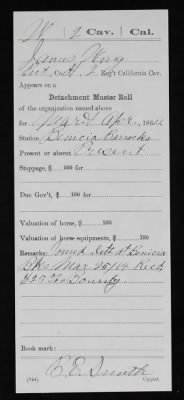 W | 2 Cav. | Cal.
James Wray
2 Reg't California Cav.
Appears on a
Detachment Muster Roll
of the organization named above
for Mar & Apr, 1864
Station Benicia Barracks
Present or absent Present
Stoppage, $ 100 for
Due Gov't, $ 100 for
Valuation of horse, $ 100
Valuation of horse equipments, $ 100
Remarks: Joined Det at Benicia
Bks Mar 25/64 Recd
Bounty
Book mark:
(344) Copyist.